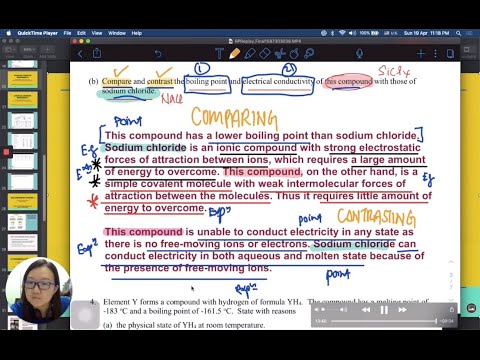 QuickTime Player File Edit View Window Help
Sun 19 Apr 11:18 PM
SiCl4
① ②
(b) Compare and contrast the boiling point and electrical conductivity of this compound with those of
sodium chloride. NaCl
point COMPARING
This compound has a lower boiling point than sodium chloride.
E.g Sodium chloride is an ionic compound with strong electrostatic
forces of attraction between ions, which requires a large amount
of energy to overcome. This compound, on the other hand, is a
simple covalent molecule with weak intermolecular forces of
attraction between the molecules. Thus it requires little amount of
energy to overcome.
point CONTRASTING
This compound is unable to conduct electricity in any state as
there is no free-moving ions or electrons. Sodium chloride can
conduct electricity in both aqueous and molten state because of
the presence of free-moving ions.
point
4. Element Y forms a compound with hydrogen of formula YH4. The compound has a melting point of
-183 °C and a boiling point of -161.5 °C. State with reasons
(a) the physical state of YH4 at room temperature.